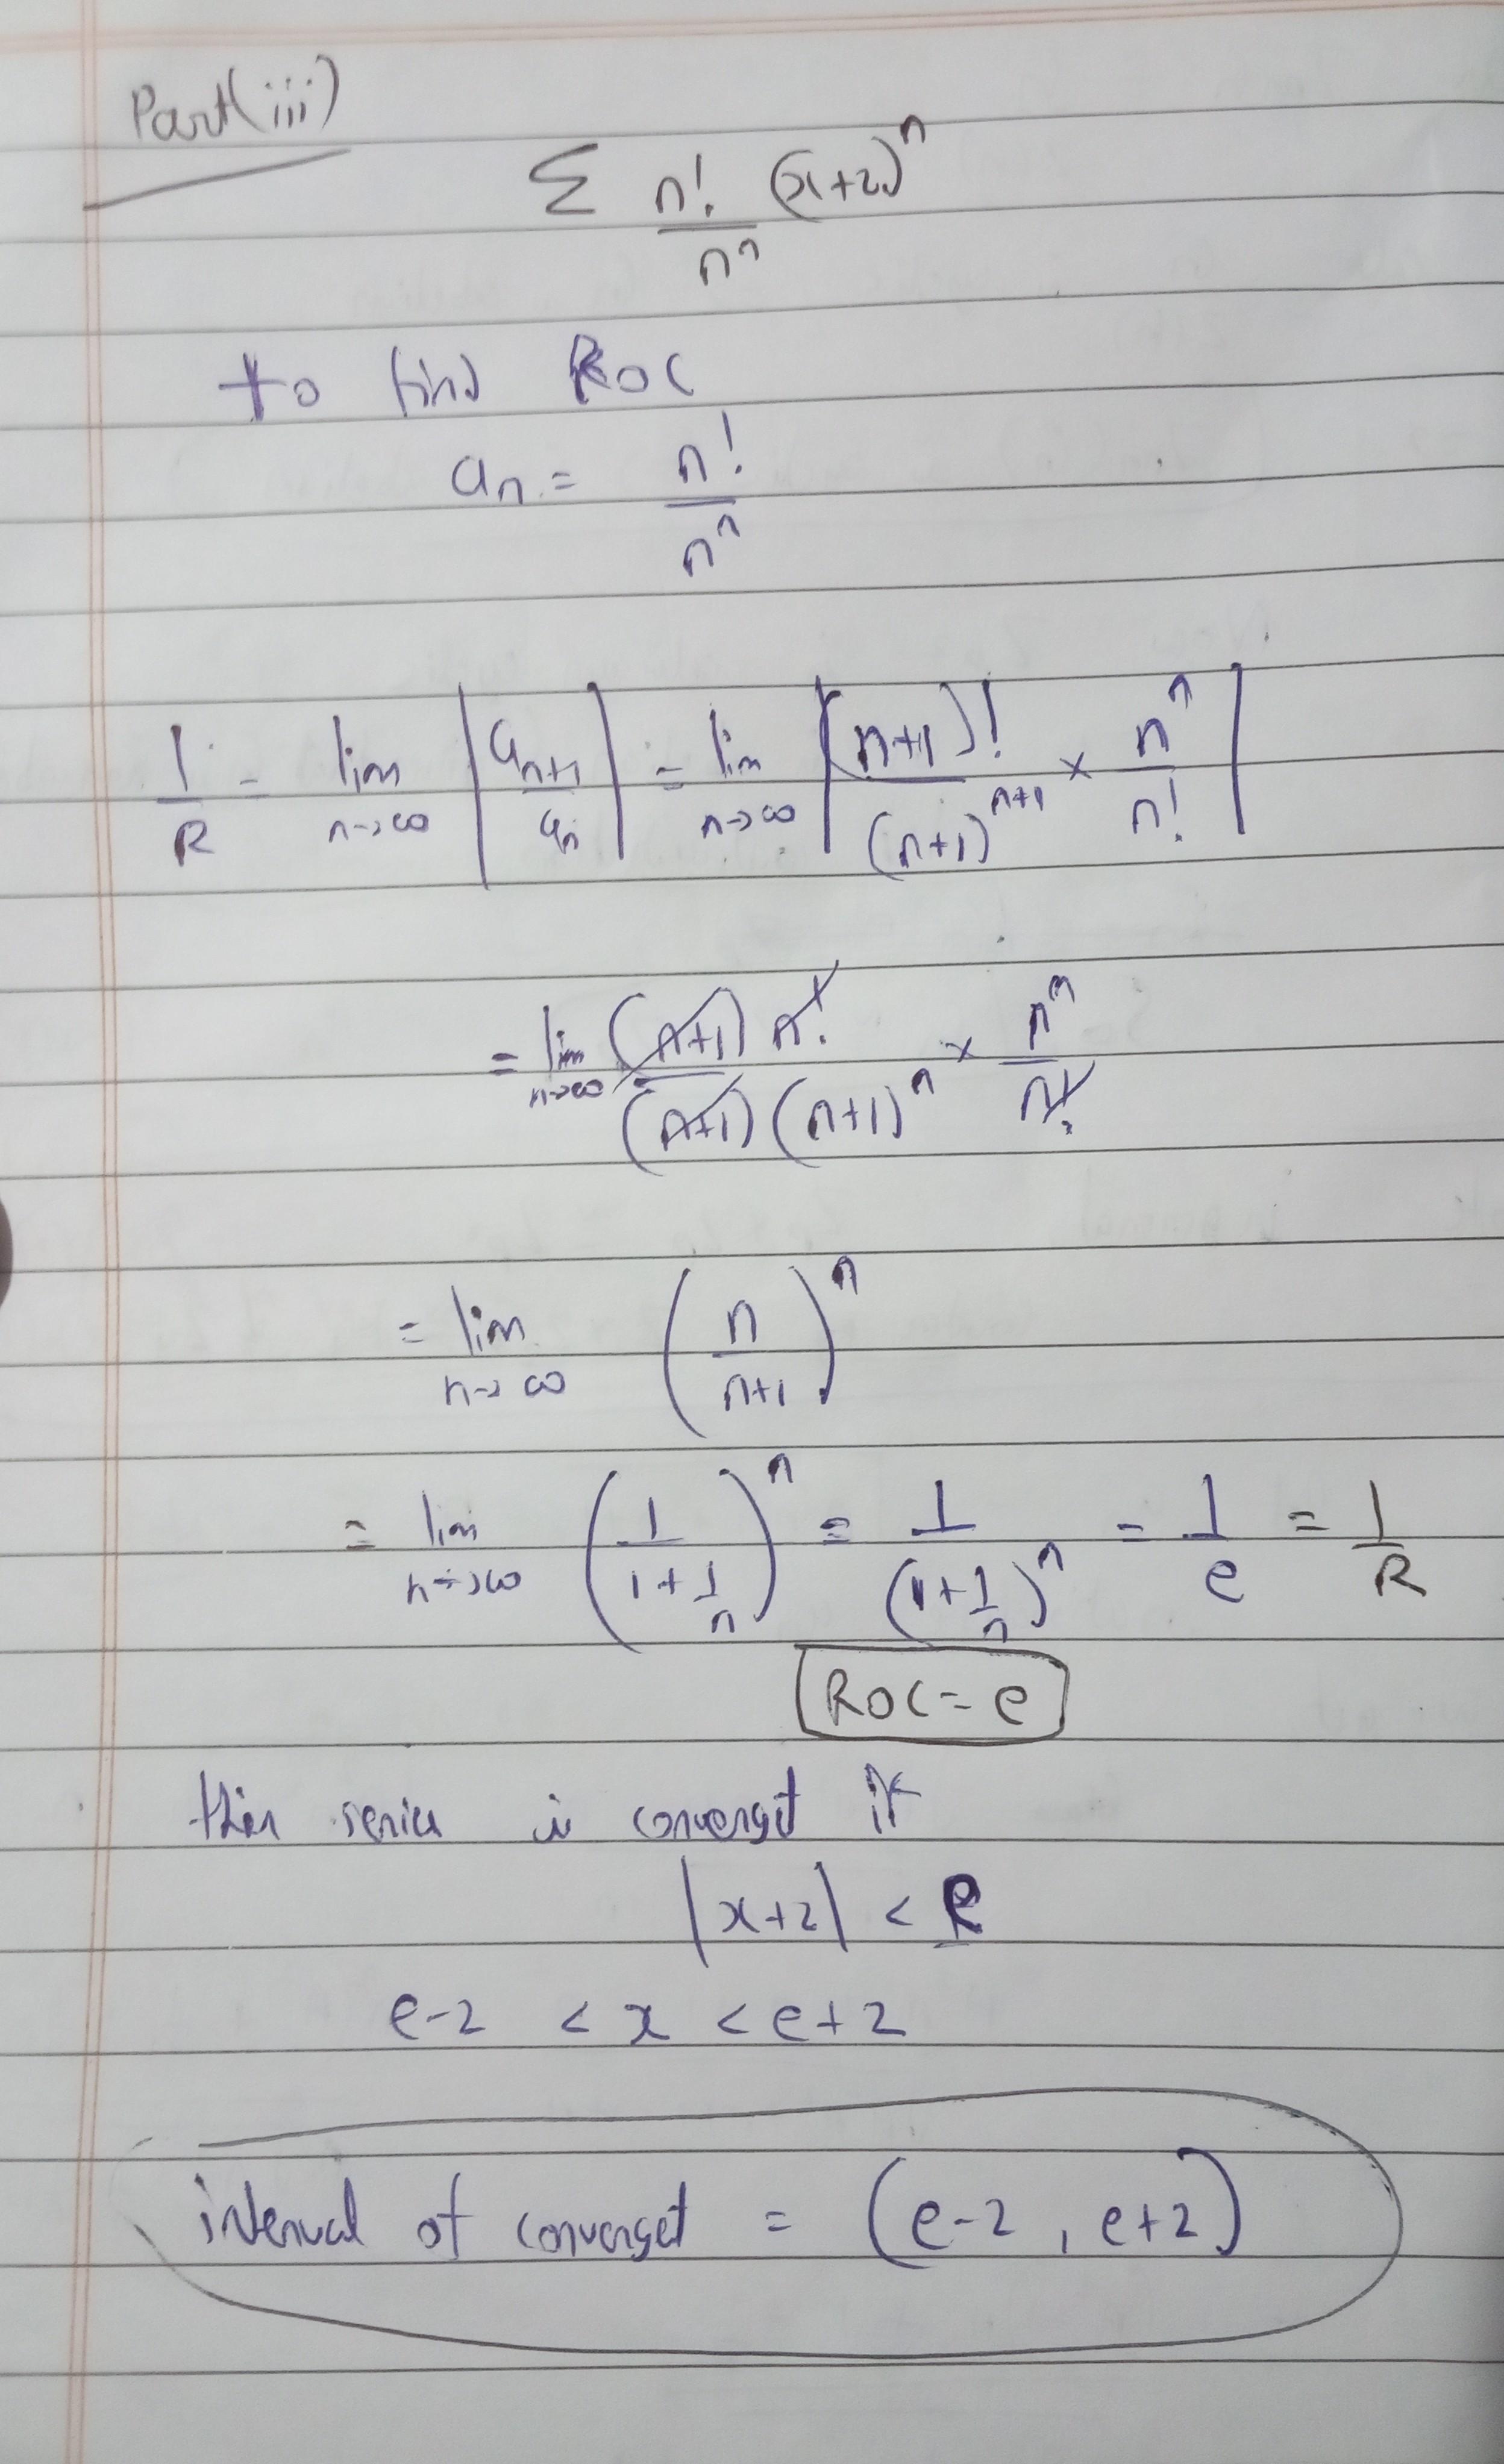 Part(iii)
Σ n!/nⁿ (x+2)ⁿ
to find ROC
aₙ = n!/nⁿ
1/R = lim n→∞ |aₙ₊₁/aₙ| = lim n→∞ |(n+1)!/(n+1)ⁿ⁺¹ × nⁿ/n!|
= lim n→∞ (n+1) n!/(n+1)(n+1)ⁿ × nⁿ/n!
= lim n→∞ (n/n+1)ⁿ
= lim n→∞ (1/1+1/n)ⁿ = 1/(1+1/n)ⁿ = 1/e = 1/R
ROC = e
this series is converget if
|x+2| < e
e-2 < x < e+2
interval of converget = (e-2, e+2)